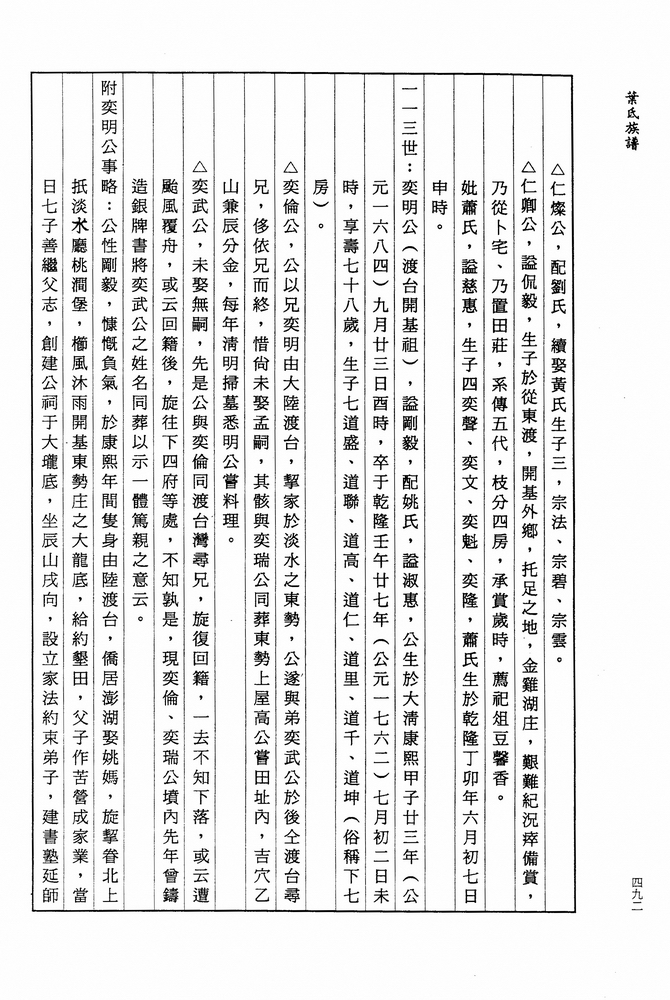 葉氏族譜
△仁燦公，配劉氏，續娶黃氏生子三，宗法、宗碧、宗雲。
△仁卿公，諡侃毅，生子於從東渡，開基外鄉，托足之地，金雞湖庄，艱難紀況瘁備賞，
乃從卜宅、乃置田莊，系傳五代，枝分四房，承賞歲時，薦祀俎豆馨香。
妣蕭氏，諡慈惠，生子四奕聲、奕文、奕魁、奕隆，蕭氏生於乾隆丁卯年六月初七日
申時。
一一三世：奕明公（渡台開基祖），諡剛毅，配姚氏，諡淑惠，公生於大清康熙甲子廿三年（公
元一六八四）九月廿三日酉時，卒于乾隆壬午廿七年（公元一七六二）七月初二日未
時，享壽七十八歲，生子七道盛、道聯、道高、道仁、道里、道千、道坤（俗稱下七
房）。
△奕倫公，公以兄奕明由大陸渡台，挈家於淡水之東勢，公遂與弟奕武公於後仝渡台尋
兄，侈依兄而終，惜尙未娶孟嗣，其骸與奕瑞公同葬東勢上屋高公嘗田址內，吉穴乙
山兼辰分金，每年清明掃墓悉明公嘗料理。
△奕武公，未娶無嗣，先是公與奕倫同渡台灣尋兄，旋復回籍，一去不知下落，或云遭
颱風覆舟，或云回籍後，旋往下四府等處，不知孰是，現奕倫、奕瑞公墳內先年曾鑄
造銀牌書將奕武公之姓名同葬以示一體篤親之意云。
附奕明公事略：公性剛毅，慷慨負氣，於康熙年間隻身由陸渡台，僑居澎湖娶姚媽，旋挈眷北上
抵淡水廳桃澗堡，櫛風沐雨開基東勢庄之大龍底，給約墾田，父子作苦營成家業，當
日七子善繼父志，創建公祠于大壠底，坐辰山戌向，設立家法約束弟子，建書塾延師
四九二